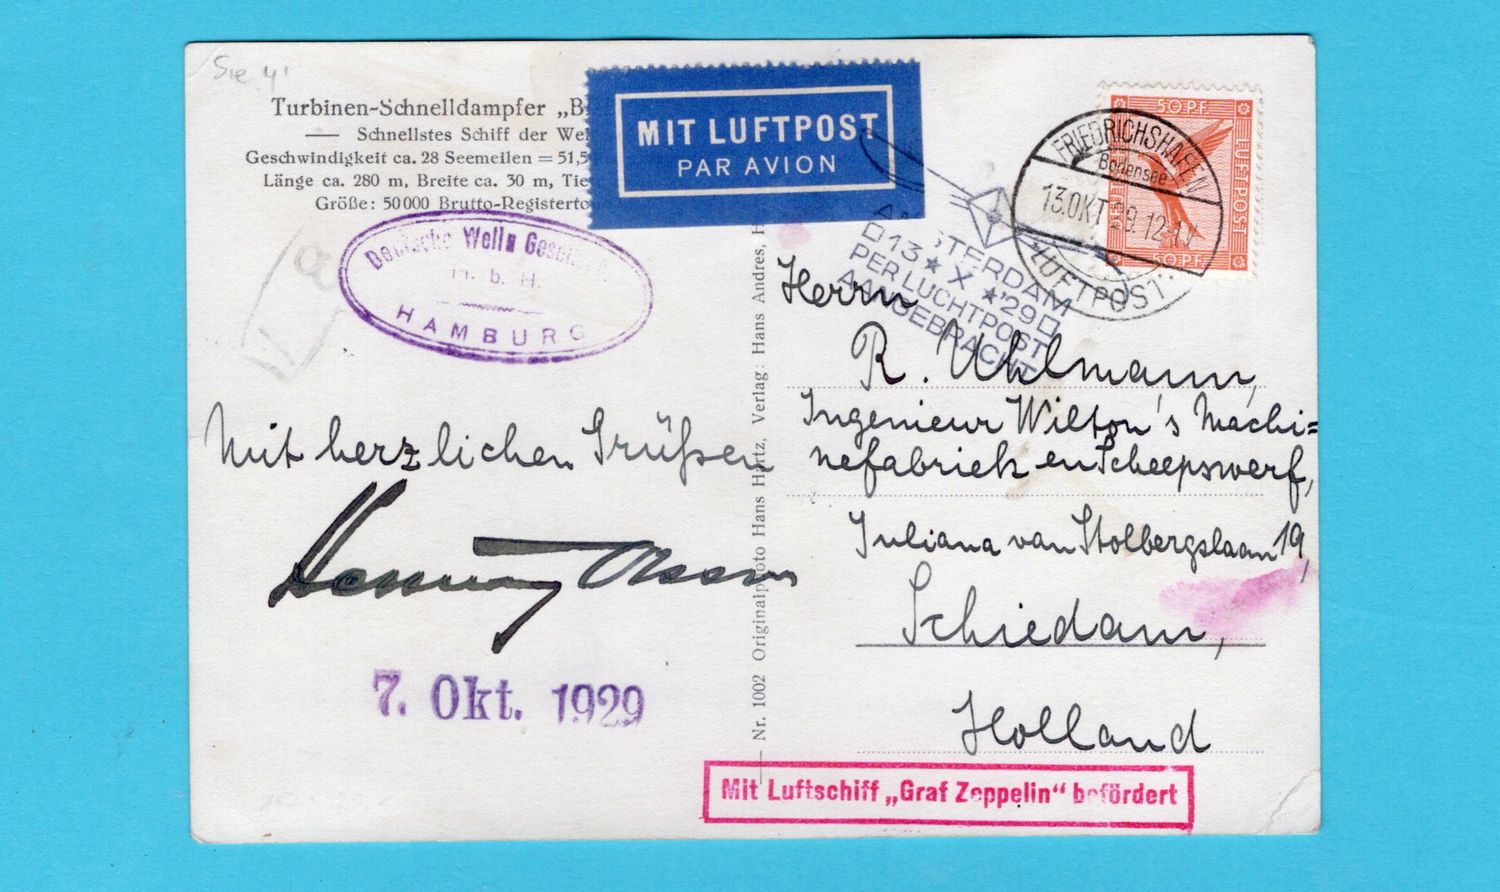 Turbinen-Schnelldampfer „B
— Schnellstes Schiff der Wel
Geschwindigkeit ca. 28 Seemeilen = 51,5
Länge ca. 280 m, Breite ca. 30 m, Tie
Größe: 50000 Brutto-Registerto
MIT LUFTPOST
PAR AVION
50 PF
LUFTPOST
50 PF
FRIEDRICHSHAFEN
Bodensee
13.OKT.29.12-
LUFTPOST
AMSTERDAM
13 * X * '29
PER LUCHTPOST
AANGEBRACHT
Deutsche Welle
m. b. H.
HAMBURG
Mit herzlichen Grüßen
7. Okt. 1929
Nr. 1002 Originalphoto Hans Hartz, Verlag: Hans Andres, H
Herrn
R. Uhlmann,
Ingenieur Wilton's Machi=
nefabriek en Scheepswerf,
Juliana van Stolbergslaan 19,
Schiedam,
Holland
Mit Luftschiff „Graf Zeppelin“ befördert